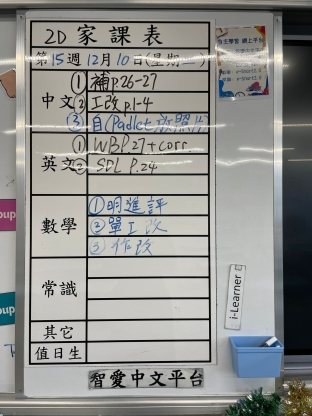 2D 家課表
第15週 12月10日(星期二)
中文
① 補p.26-27
② 工改 p.1-4
③ 自(Padlet放照片)
英文
① WB P.27 + corr.
② SDL P.24
數學
① 明進評
② 單工 改
③ 作改
常識
其它
值日生
智愛中文平台
自主學習 網上平台
i-Learner